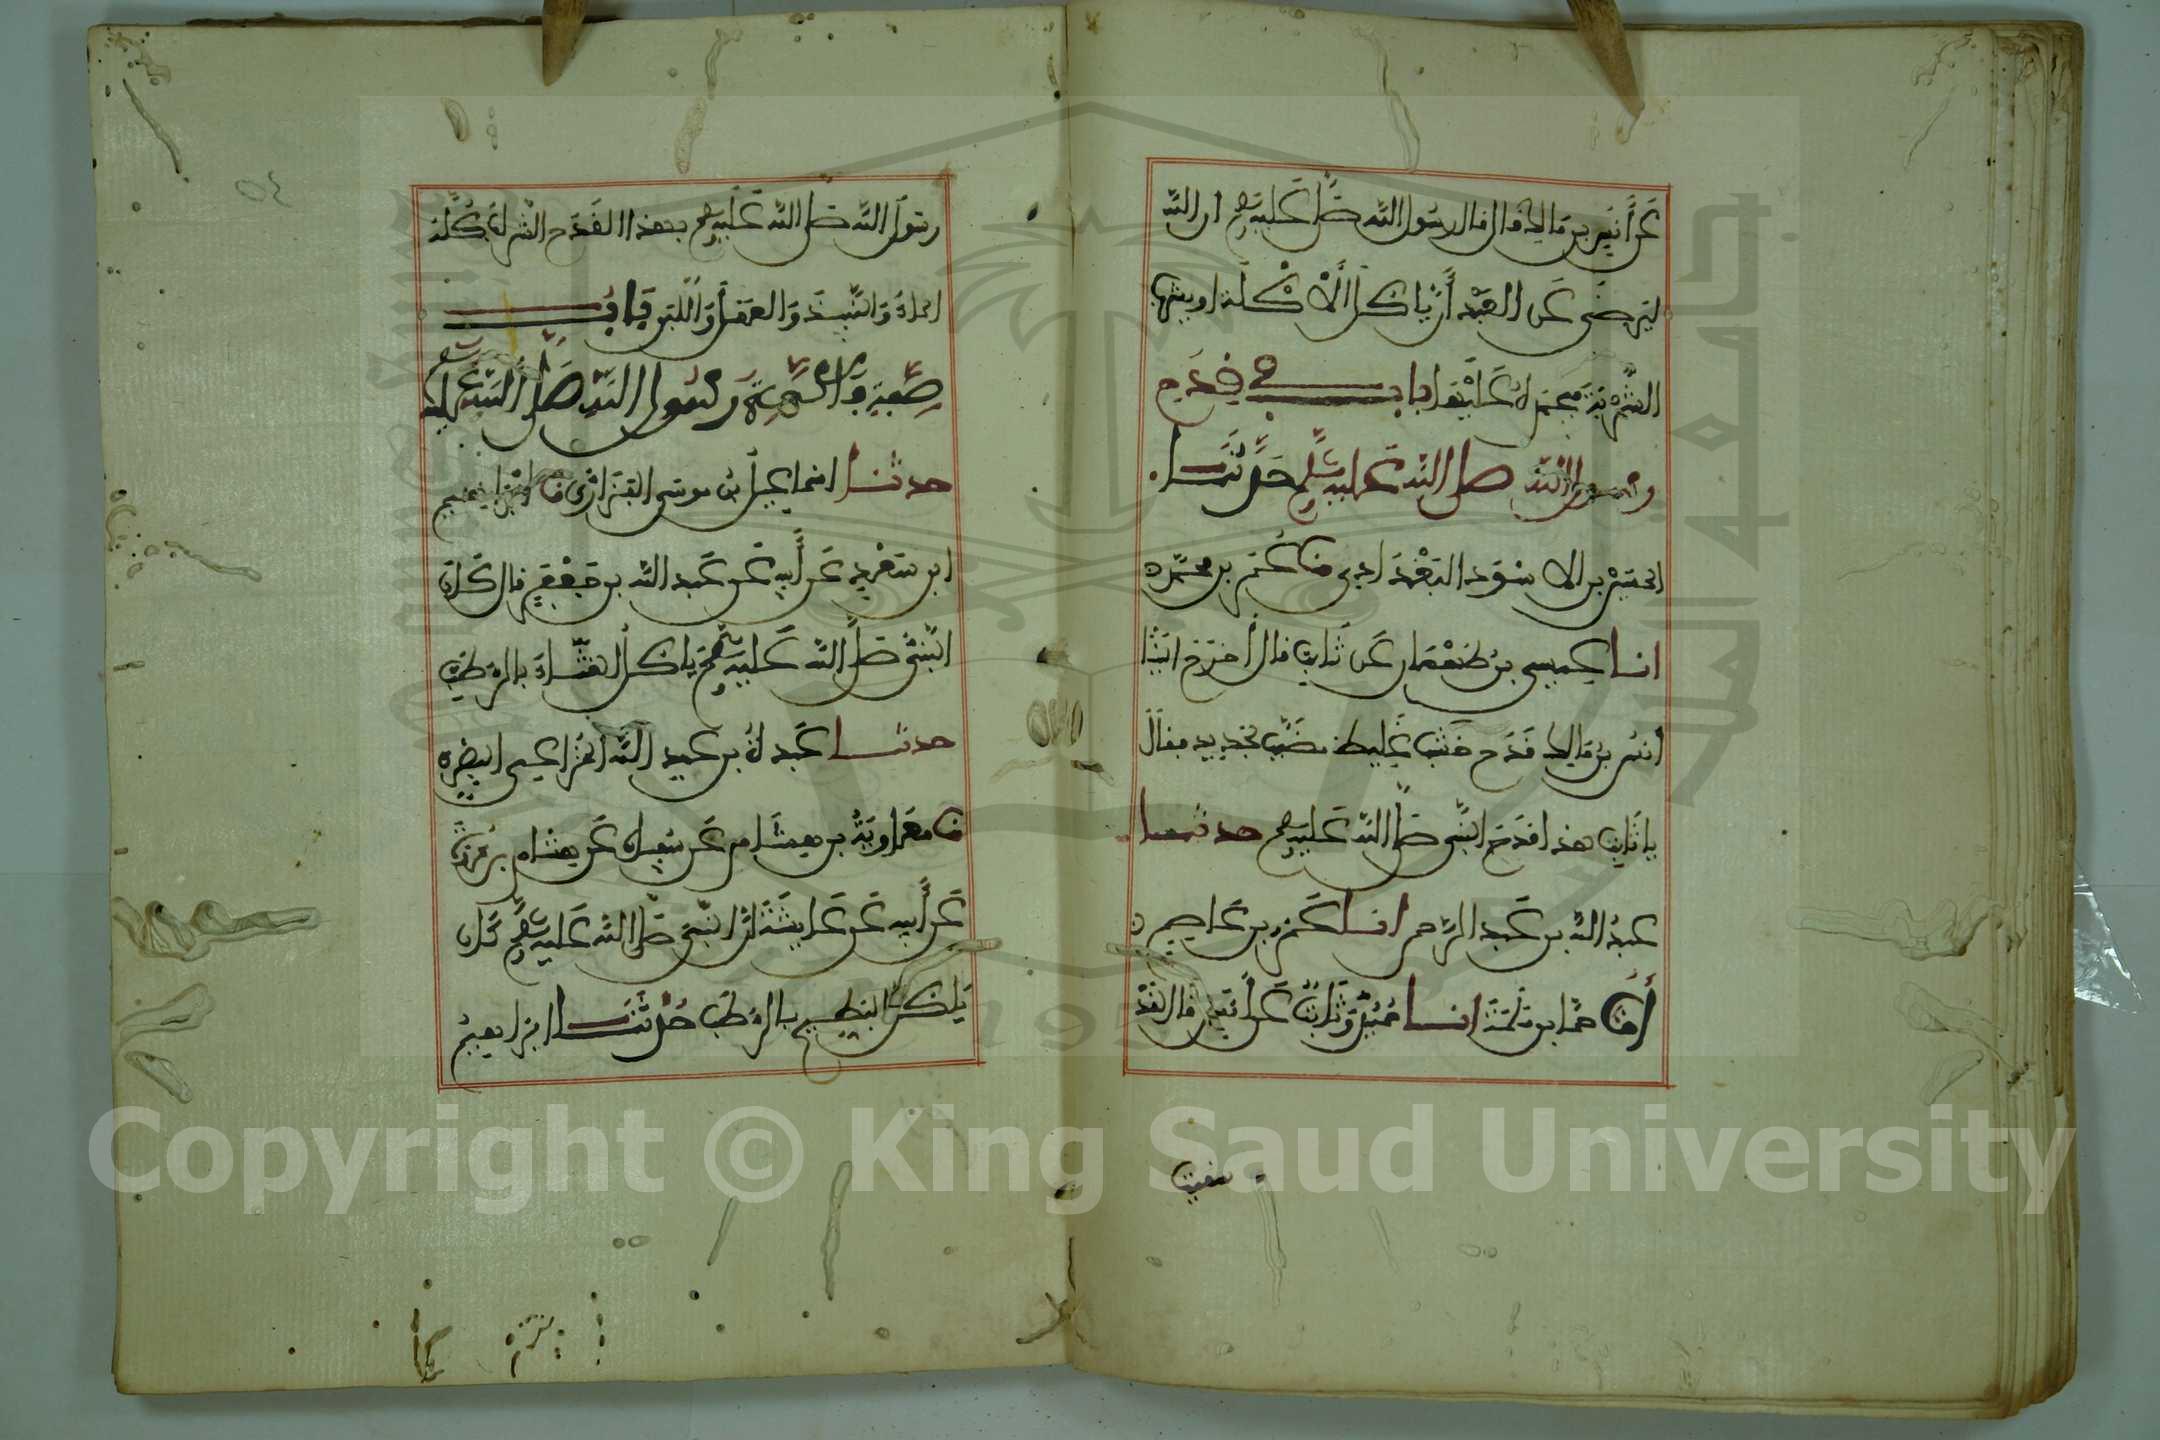 عَن أَنَس بن مَالك قال قال رسُول الله صَلَّى عَليه وسلم ان الله
ليَرضَى عَن العَبْد أَنْ ياكل الأَكْلَة او يشربَ
الشَّرْبَةَ فيحمَدَهُ عَلَيْهَا باب في قدَح
رسول الله صلى الله عَليه وسلم حَدَّثنَا
الحسَيْن بن الاسْوَد البَغْدَادِي نا عُمَر بن محمّد
انا عيسى بن طَهْمَان عَن ثَابِت قال أخرَج الَيْنَا
أنسُ بنُ مَالِك قَدَح خشَب غَلِيظ مضَبَّب بحَديد فقالَ
يا ثَابِت هذا قدَحُ النَّبي صَلَّى الله عَليه وسلم حدثنا
عبدُ الله بن عَبد الرّحمن انا عَمرو بن عَاصِم
أَنا حمّاد بن سَلمَةَ انا حُمَيْدٌ وَثَابِتٌ عَن أنَس قال لقَدْ
سقيت
رسُول الله صَلى الله عَليه وسلم بهذا القَدَح الشرابَ كُلَّه
الماءَ وَالنَّبيذ وَالعَسَل وَاللَّبَن بابُ
صفة فاكهة رسُول الله صَلى الله عَليه وسلم
حدثنا اسماعيل بن موسَى الفَزَارِي نا ابراهيم
ابن سَعْد عَن أَبيه عَن عَبد الله بن جَعْفَر قال كانَ
النَّبيّ صَلى الله عَليه وسلم ياكل القثّاءَ بالرّطَبِ
حدثنا عَبدةُ بن عَبد الله الخُزاعِي البصْرِي
نا معَاويَةُ بن هشَام عَن سُفيان عَن هِشَام بن عُروَةَ
عَن أَبيه عَن عَايشَةَ انّ النّبيّ صَلى الله عَليه وسلم كانَ
يَاكل البطيخ بالرّطَب حَدَّثنَا ابراهيمُ
Copyright © King Saud University
1957